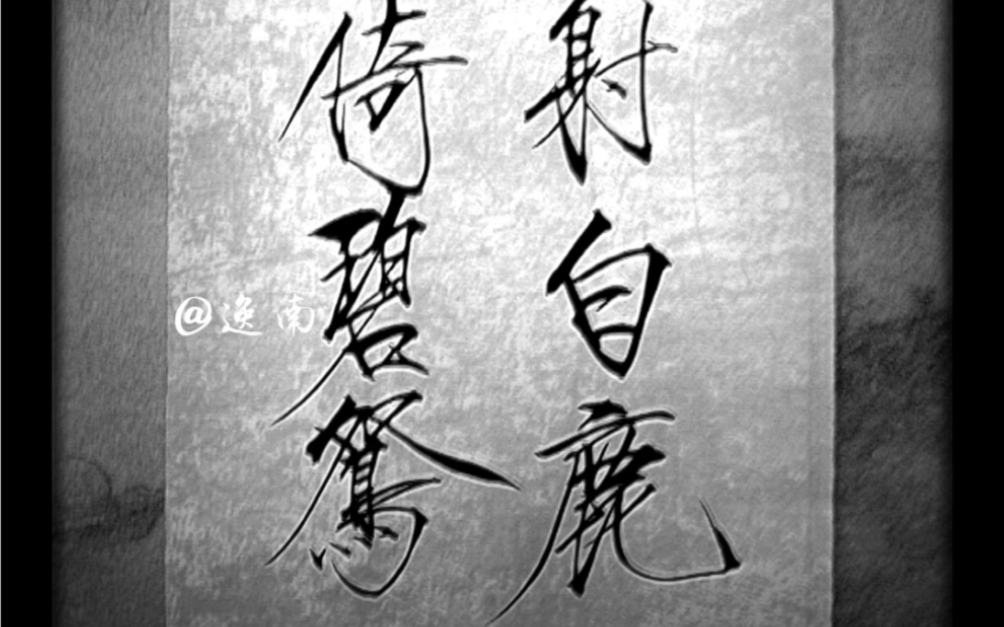 射白鹿
倚碧鴛
@逸南